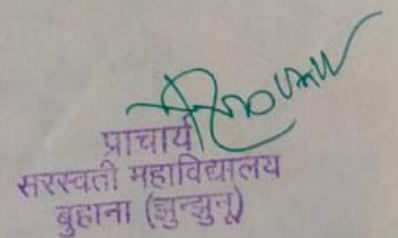 प्राचार्य
सरस्वती महाविद्यालय
बुहाना (झुन्झुनू)